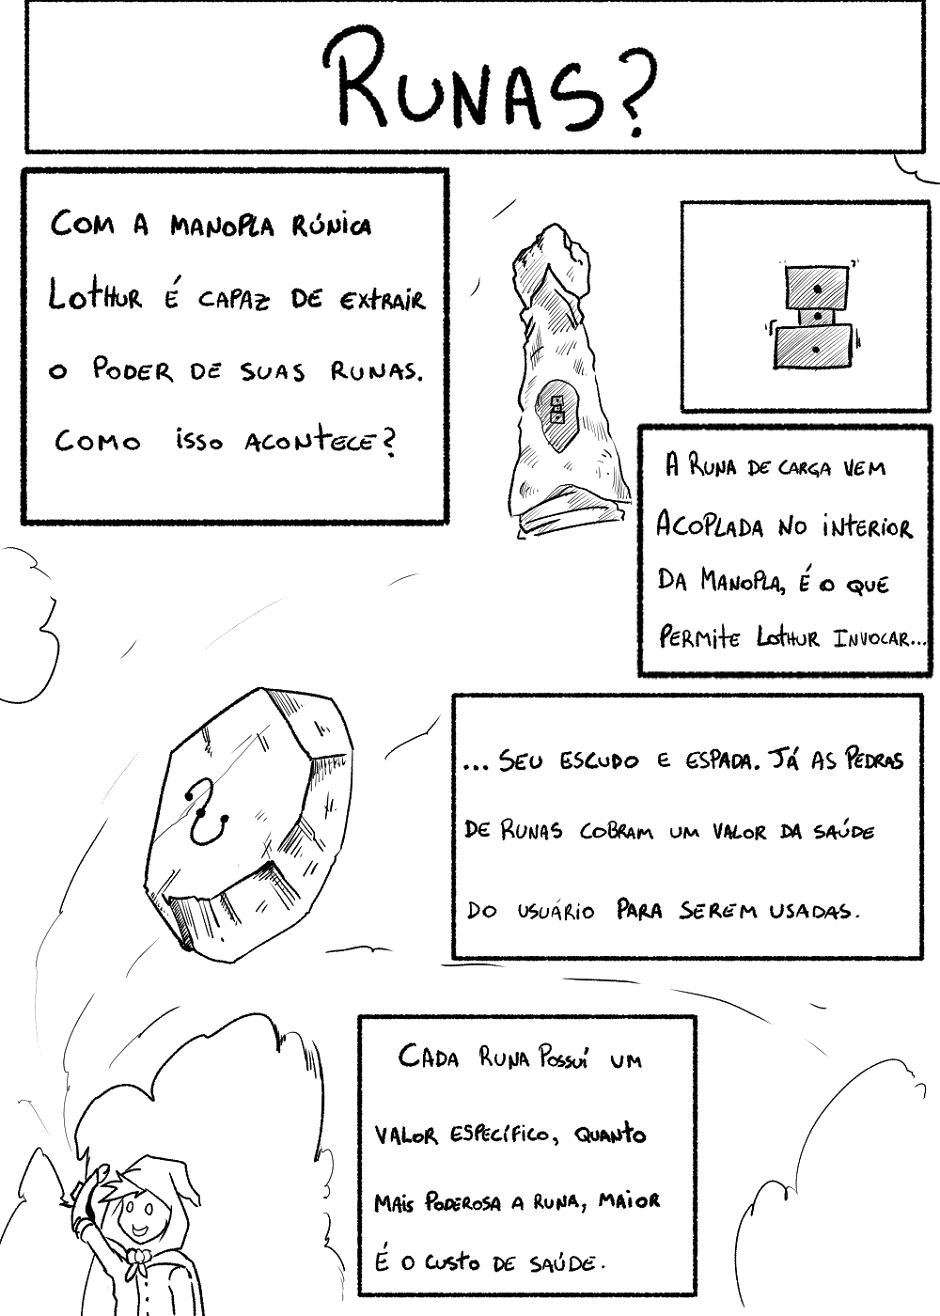 RUNAS?
COM A MANOPLA RÚNICA
LOTHUR É CAPAZ DE EXTRAIR
O PODER DE SUAS RUNAS.
COMO ISSO ACONTECE?
A RUNA DE CARGA VEM
ACOPLADA NO INTERIOR
DA MANOPLA, É O QUE
PERMITE LOTHUR INVOCAR...
... SEU ESCUDO E ESPADA. JÁ AS PEDRAS
DE RUNAS COBRAM UM VALOR DA SAÚDE
DO USUÁRIO PARA SEREM USADAS.
CADA RUNA POSSUÍ UM
VALOR ESPECÍFICO, QUANTO
MAIS PODEROSA A RUNA, MAIOR
É O CUSTO DE SAÚDE.